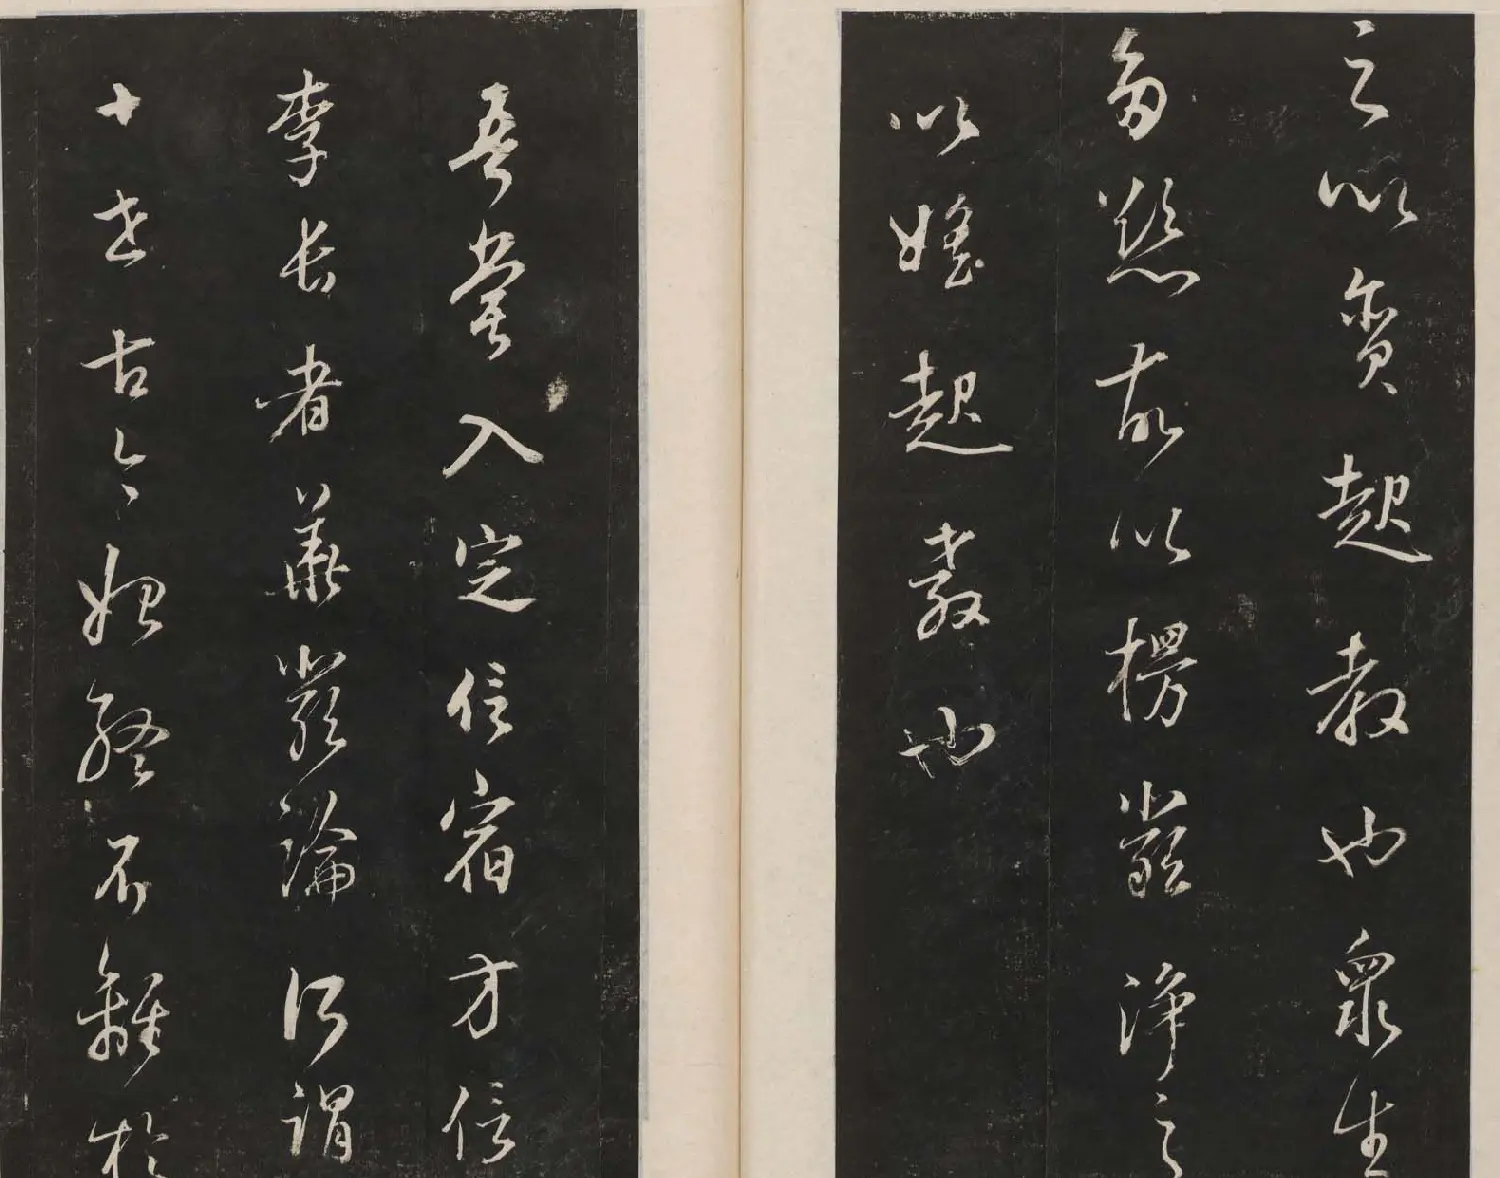 之以貪起教也眾生
多慾故以楞嚴淨之
以婬起教也
吾嘗入定信宿方信
李長者華嚴論所謂
十世古今始終不離於